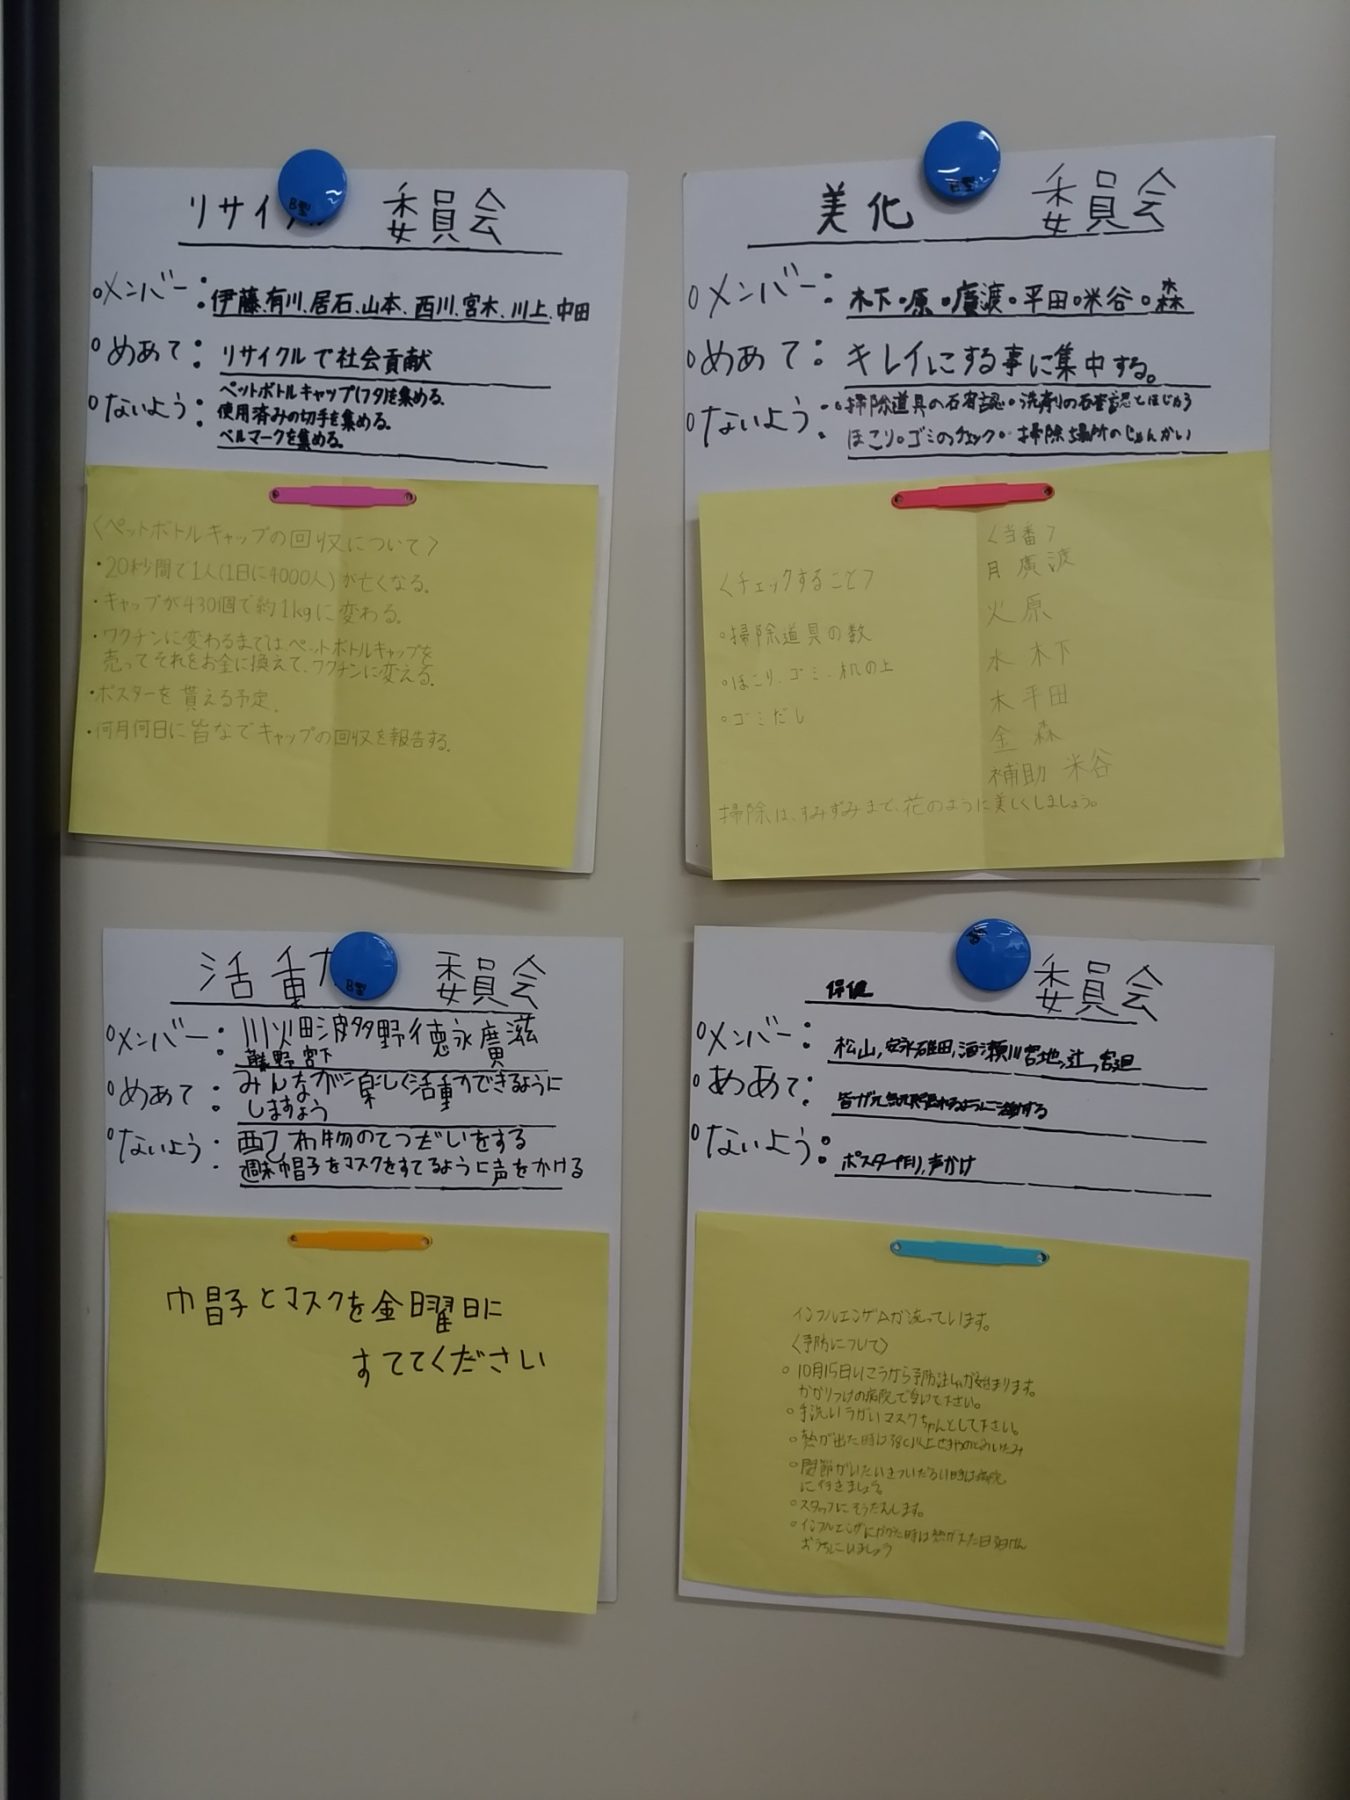 リサイクル 委員会
○メンバー：伊藤、有川、居石、山本、西川、宮木、川上、中田
○めあて：リサイクルで社会貢献
○ないよう：ペットボトルキャップ(フタ)を集める。
使用済みの切手を集める。
ベルマークを集める。
〈ペットボトルキャップの回収について〉
・20秒間で1人(1日に4000人)が亡くなる。
・キャップが430個で約1kgに変わる。
・ワクチンに変わるまではペットボトルキャップを
売ってそれをお金に換えて、ワクチンに変える。
・ポスターを貰える予定。
・何月何日に皆なでキャップの回収を報告する。
美化 委員会
○メンバー：木下○原○廣渡○平田○米谷○森
○めあて：キレイにする事に集中する。
○ないよう：○掃除道具の確認○洗剤の確認とほじゅう
ほこり○ゴミのチェック○掃除場所のじゅんかい
〈チェックすること〉
○掃除道具の数
○ほこり、ゴミ、机の上
○ゴミだし
〈当番〉
月 廣渡
火 原
水 木下
木 平田
金 森
補助 米谷
掃除は、すみずみまで、花のように美しくしましょう。
活動 委員会
○メンバー：川 田波多野徳永廣滋
熊野宮下
○めあて：みんなが楽しく活動できるように
しますよう
○ないよう：配 物のてつだいをする
週末帽子をマスクをすてるように声をかける
帽子とマスクを金曜日に
すててください
保健 委員会
○メンバー：松山,安永 田, 瀬川宮地,辻,宮廻
○めあて：皆が元気に ように活動する
○ないよう：ポスター作り,声かけ
インフルエンザが流っています。
〈予防について〉
○10月15日いこうから予防注しゃが始まります。
かかりつけの病院で受けて下さい。
○手洗いうがいマスクちゃんとして下さい。
○熱が出た時は38℃以上
○関節がいたいきついだるい時は病院
に行きましょう
○スタッフにそうだんします。
○インフルエンザにかかった時は熱が
おうちにいましょう